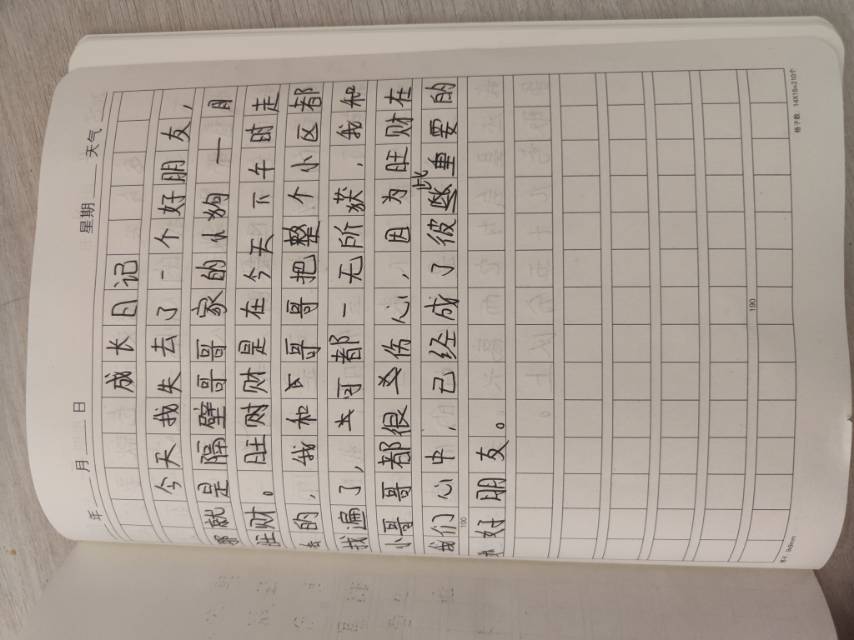 年 月 日 星期 天气
成长日记
今天我失去了一个好朋友，
那就是隔壁哥哥家的小狗——
旺财。旺财是在今天下午时走
丢的，我和哥哥把整个小区都
找遍了，可都一无所获，我和
小哥哥都很伤心，因为旺财在
我们心中，已经成了彼此重要的
好朋友。
190
190
格子数：14X15=210个